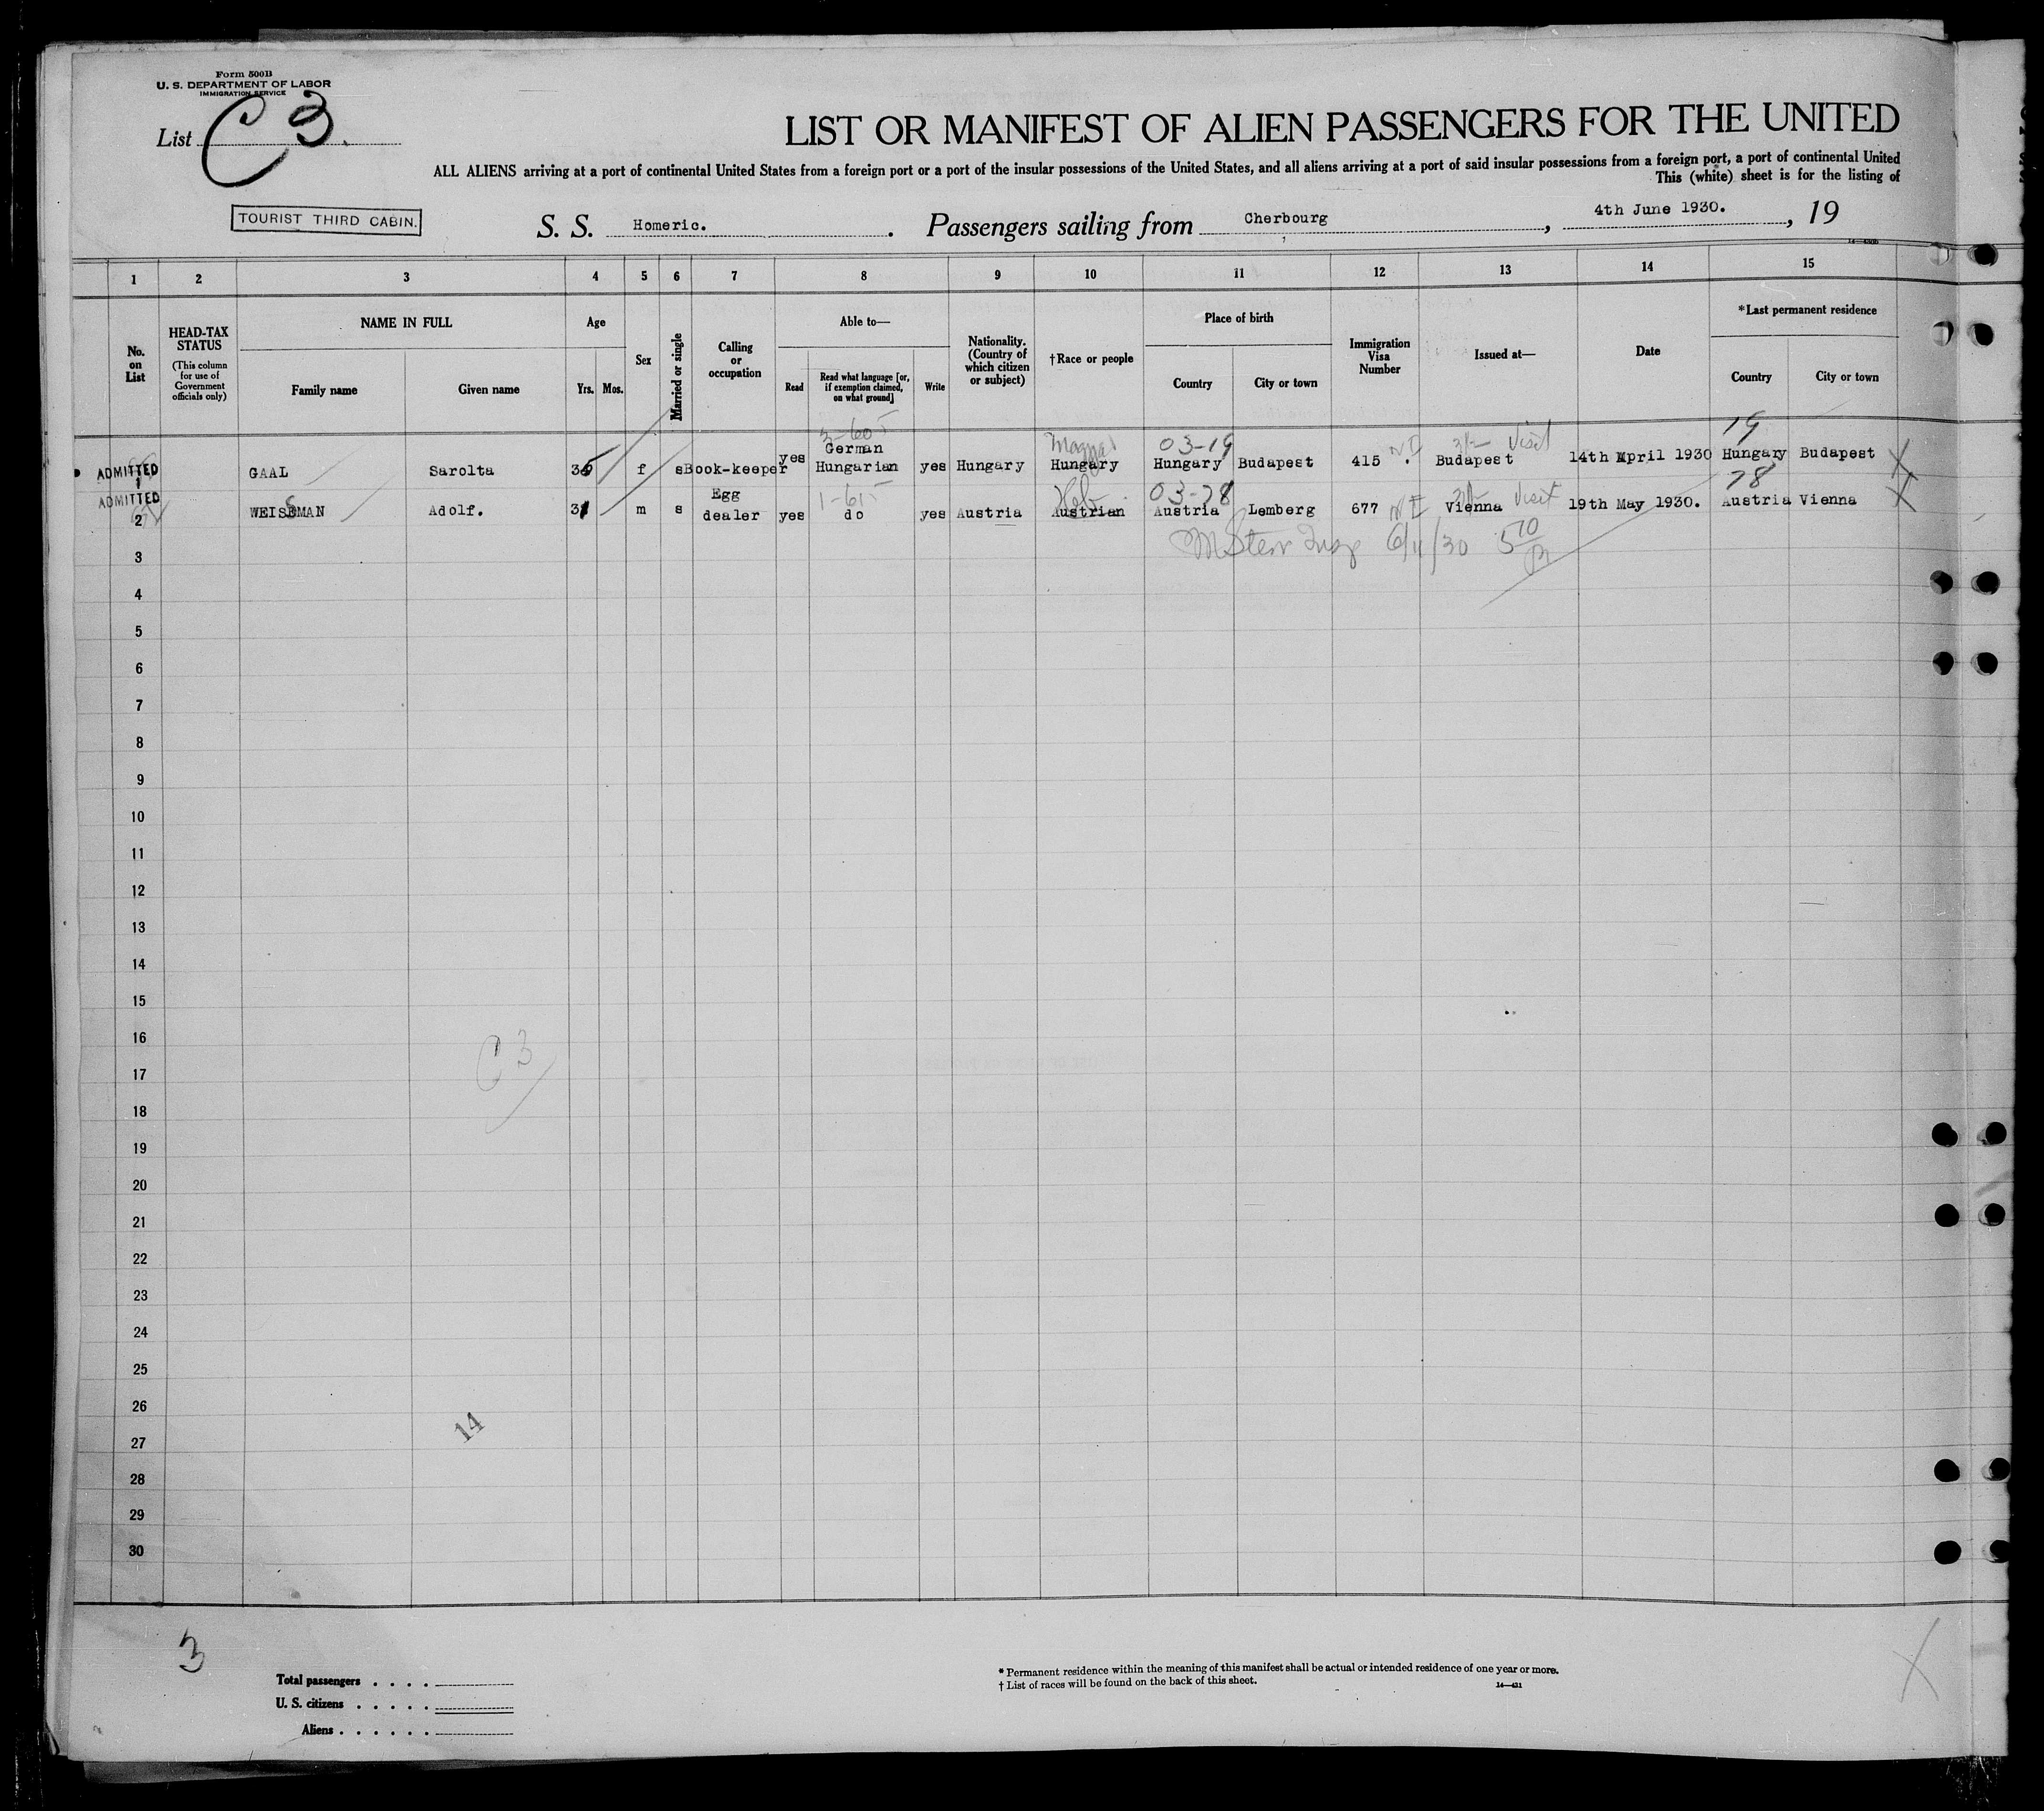 Form 500B
U. S. DEPARTMENT OF LABOR
IMMIGRATION SERVICE
List C 3.
LIST OR MANIFEST OF ALIEN PASSENGERS FOR THE UNITED
ALL ALIENS arriving at a port of continental United States from a foreign port or a port of the insular possessions of the United States, and all aliens arriving at a port of said insular possessions from a foreign port, a port of continental United
This (white) sheet is for the listing of
TOURIST THIRD CABIN.
S. S. Homeric. Passengers sailing from Cherbourg, 4th June 1930., 19
14—430b
1 2 3 4 5 6 7 8 9 10 11 12 13 14 15
No. on List
HEAD-TAX STATUS
(This column for use of Government officials only)
NAME IN FULL
Family name
Given name
Age
Yrs.
Mos.
Sex
Married or single
Calling or occupation
Able to—
Read
Read what language [or, if exemption claimed, on what ground]
Write
Nationality. (Country of which citizen or subject)
†Race or people
Place of birth
Country
City or town
Immigration Visa Number
Issued at—
Date
*Last permanent residence
Country
City or town
3-605
Magyar
03-19
NI
Visit
19
ADMITTED 1 GAAL Sarolta 35 f s Book-keeper yes German Hungarian yes Hungary Hungary Hungary Budapest 415 Budapest 14th April 1930 Hungary Budapest X
1-615
Heb
03-78
NI
Visit
78
ADMITTED 2 WEISSMAN Adolf. 31 m s Egg dealer yes do yes Austria Austrian Austria Lemberg 677 Vienna 19th May 1930. Austria Vienna X
M Stern Insp 6/11/30 510
3
4
5
6
7
8
9
10
11
12
13
14
15
16
C 3
17
18
19
20
21
22
23
24
25
26
14
27
28
29
30
3
Total passengers . . . .
U. S. citizens . . . . .
Aliens . . . . . .
* Permanent residence within the meaning of this manifest shall be actual or intended residence of one year or more.
† List of races will be found on the back of this sheet.
14—421
X